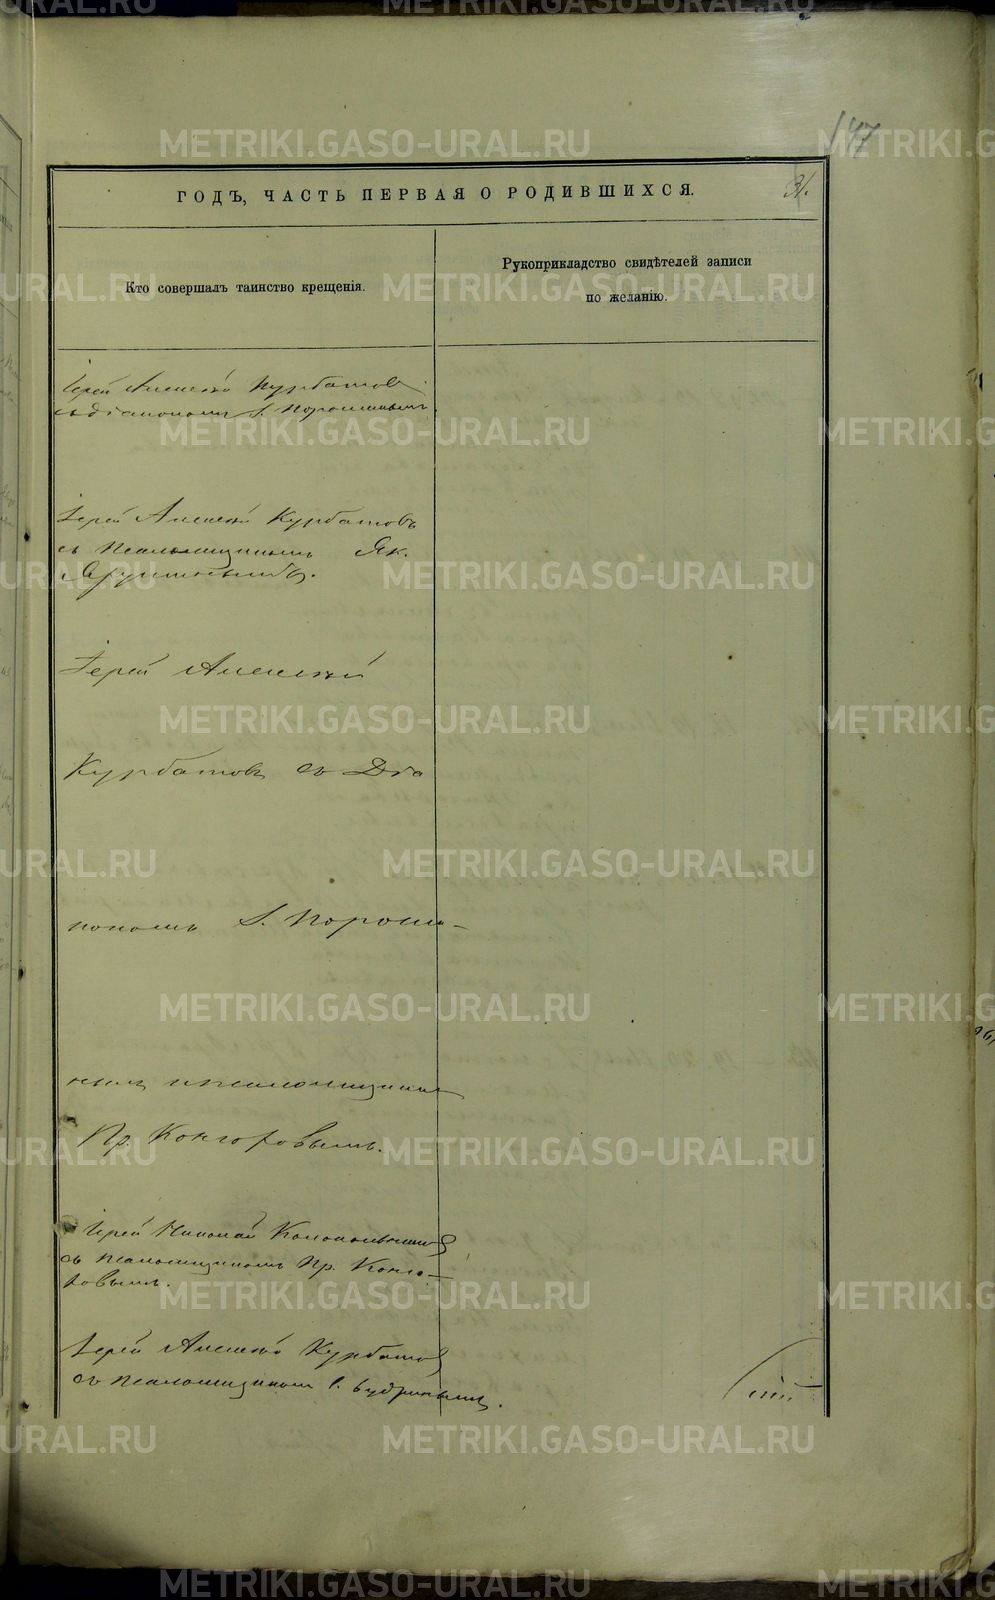 METRIKI.GASO-URAL.RU
147
ГОДЪ, ЧАСТЬ ПЕРВАЯ О РОДИВШИХСЯ.
31.
Кто совершалъ таинство крещенія.
Рукоприкладство свидѣтелей записи
по желанію.
Іерей Алексѣй Курбатовъ
съ діакономъ І. Порошинымъ.
Іерей Алексѣй Курбатовъ
съ Псаломщикомъ Як.
Іерей Алексѣй
Курбатовъ съ Діа
кономъ І. Пороши-
нымъ и псаломщикомъ
Пр. Конгоровымъ.
Іерей Николай
съ псаломщикомъ Пр. Конго-
ровымъ.
Іерей Алексѣй Курбатовъ
съ псаломщикомъ Будринымъ.